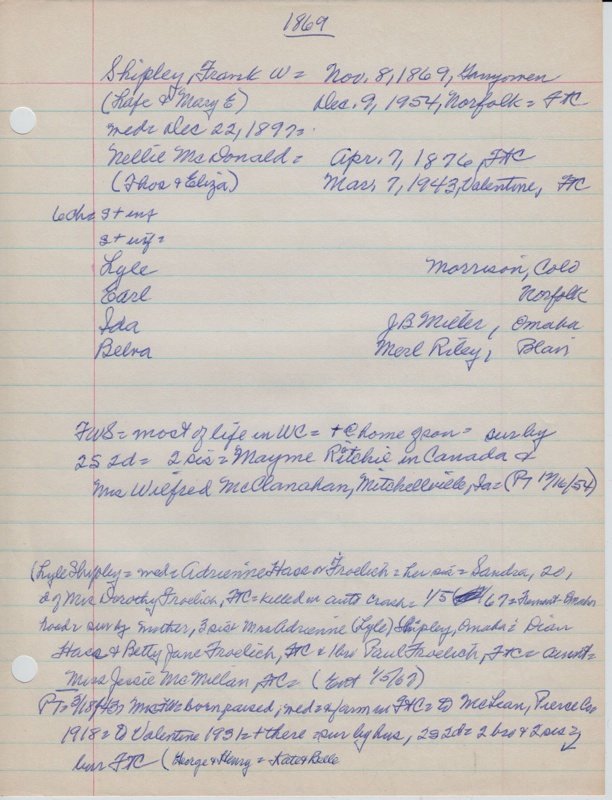 1869
Shipley, Frank W = Nov. 8, 1869, Garryowen
(Rafe & Mary E) Dec. 9, 1954, Norfolk = FtC
med= Dec 22, 1897=
Nellie McDonald = Apr. 7, 1876, FtC
(Thos & Eliza) Mar. 7, 1943, Valentine, FtC
6ch= s + inf
s + inf=
Lyle Morrison, Colo
Earl Norfolk
Ida J B Miller, Omaha
Belva Merl Riley, Blair
FWS = most of life in WC = + @ home of son = sur by
2s 2d = 2 sis = Mayme Ritchie in Canada &
Mrs Wilfred McClanahan, Mitchellville, Ia = (PT 12/16/54)
(Lyle Shipley = med = Adrienne Hass or Froelich = her sis = Sandra, 20,
d of Mrs Dorothy Froelich, FtC = killed in auto crash = 1/5 67 = Fremont-Omaha
road = sur by mother, 3 sis = Mrs Adrienne (Lyle) Shipley, Omaha = Dian
Hass & Betty Jane Froelich, FtC & bro Paul Froelich, FtC = aunt =
Miss Jessie McMillan, FtC = (Ent 1/5/67)
PT = 3/18/43 = Mrs FW = born, raised, med = farm in FtC = to McLean, Pierce Co
1918 = to Valentine 1931 = + there = sur by hus, 2s 2d = 2 bro & 2 sis =
bur FtC (George & Henry = Kate & Belle